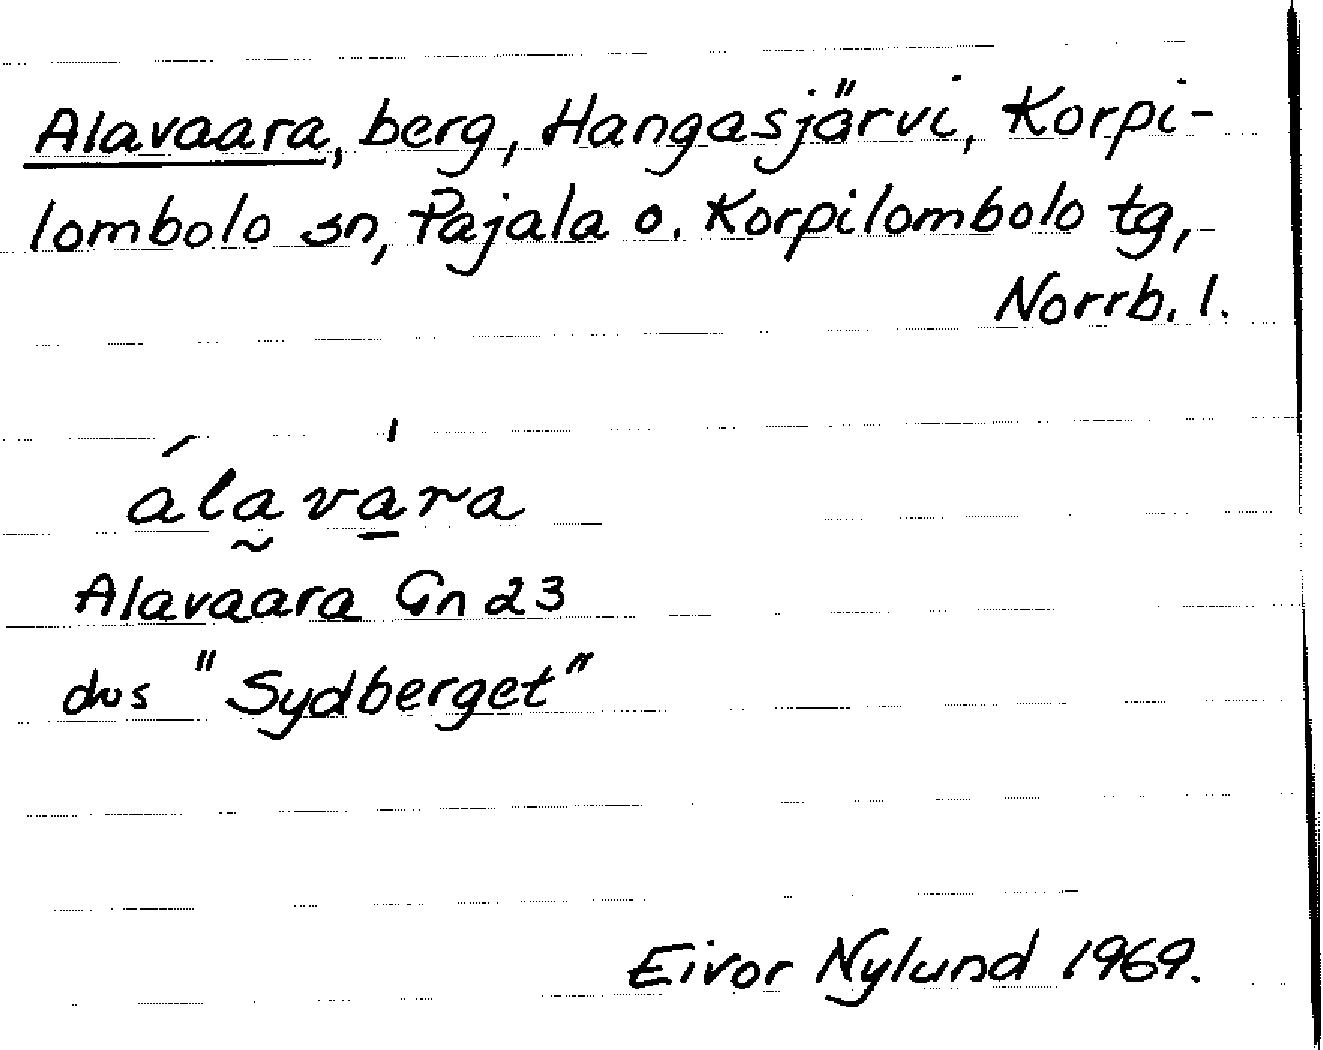 Alavaara, berg, Hangasjärvi, Korpi-
lombolo sn, Pajala o. Korpilombolo tg,
Norrb. l.
álavára
Alavaara Gn 23
dvs "Sydberget"
Eivor Nylund 1969.